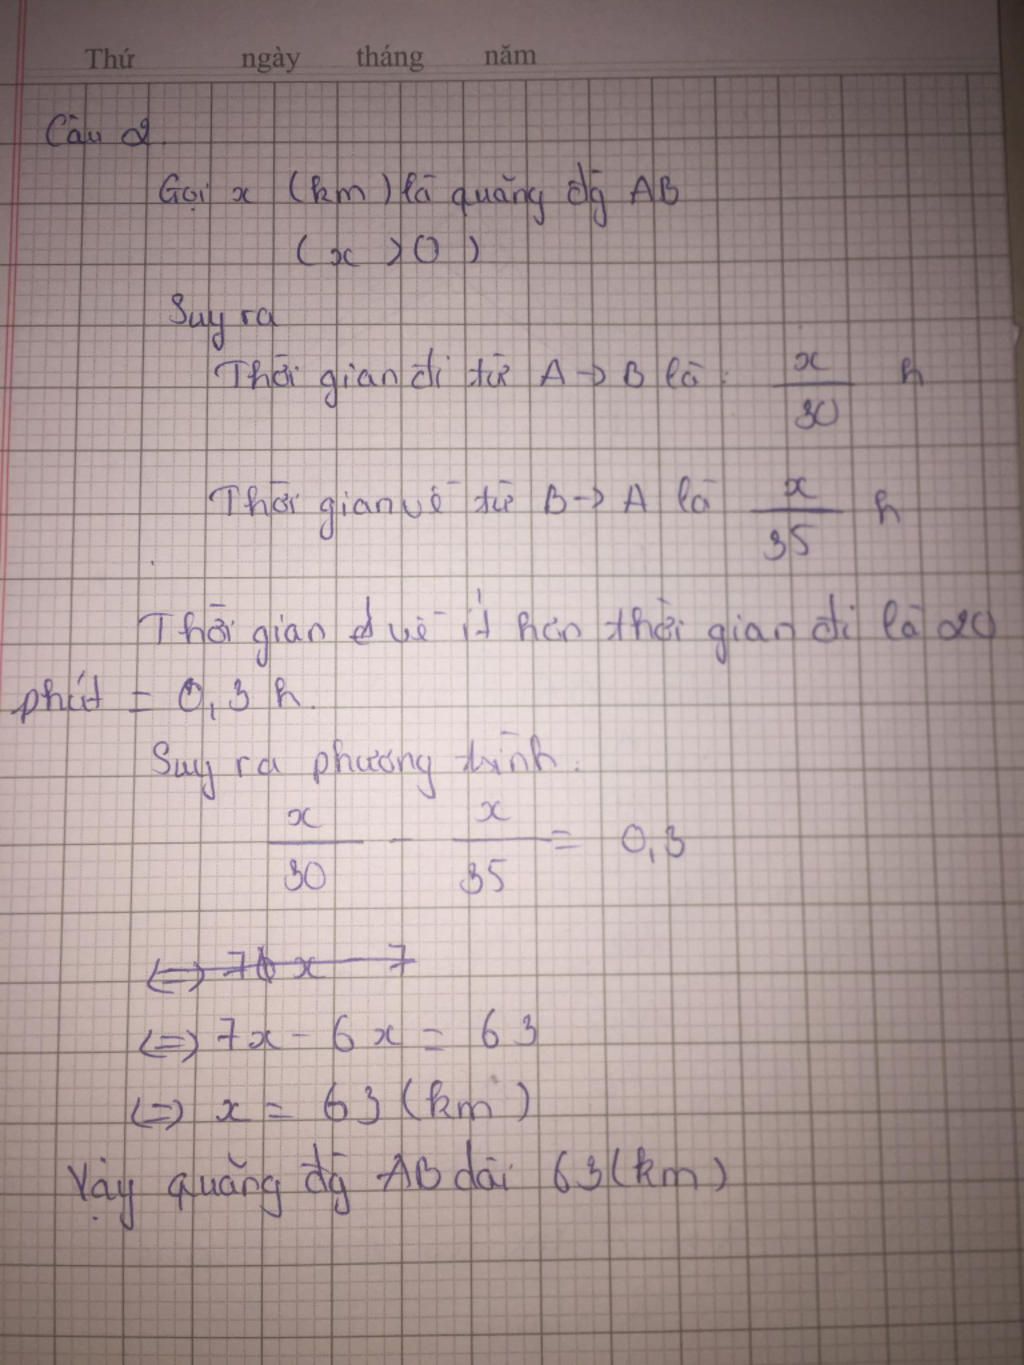 Thứ ngày tháng năm
Câu 2.
Gọi x (km) là quãng đg AB
(x > 0)
Suy ra
Thời gian đi từ A → B là: x/30 h
Thời gian về từ B → A là x/35 h
Thời gian về ít hơn thời gian đi là 20
phút = 0,3 h.
Suy ra phương trình.
x/30 - x/35 = 0,3
(=) 7x - 6x = 63
(=) x = 63 (km)
Vậy quãng đg AB dài 63 (km)